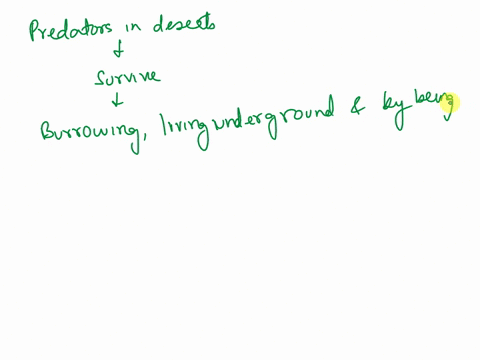 Predators in deserts
↓
Survive
↓
Burrowing, living underground & by being